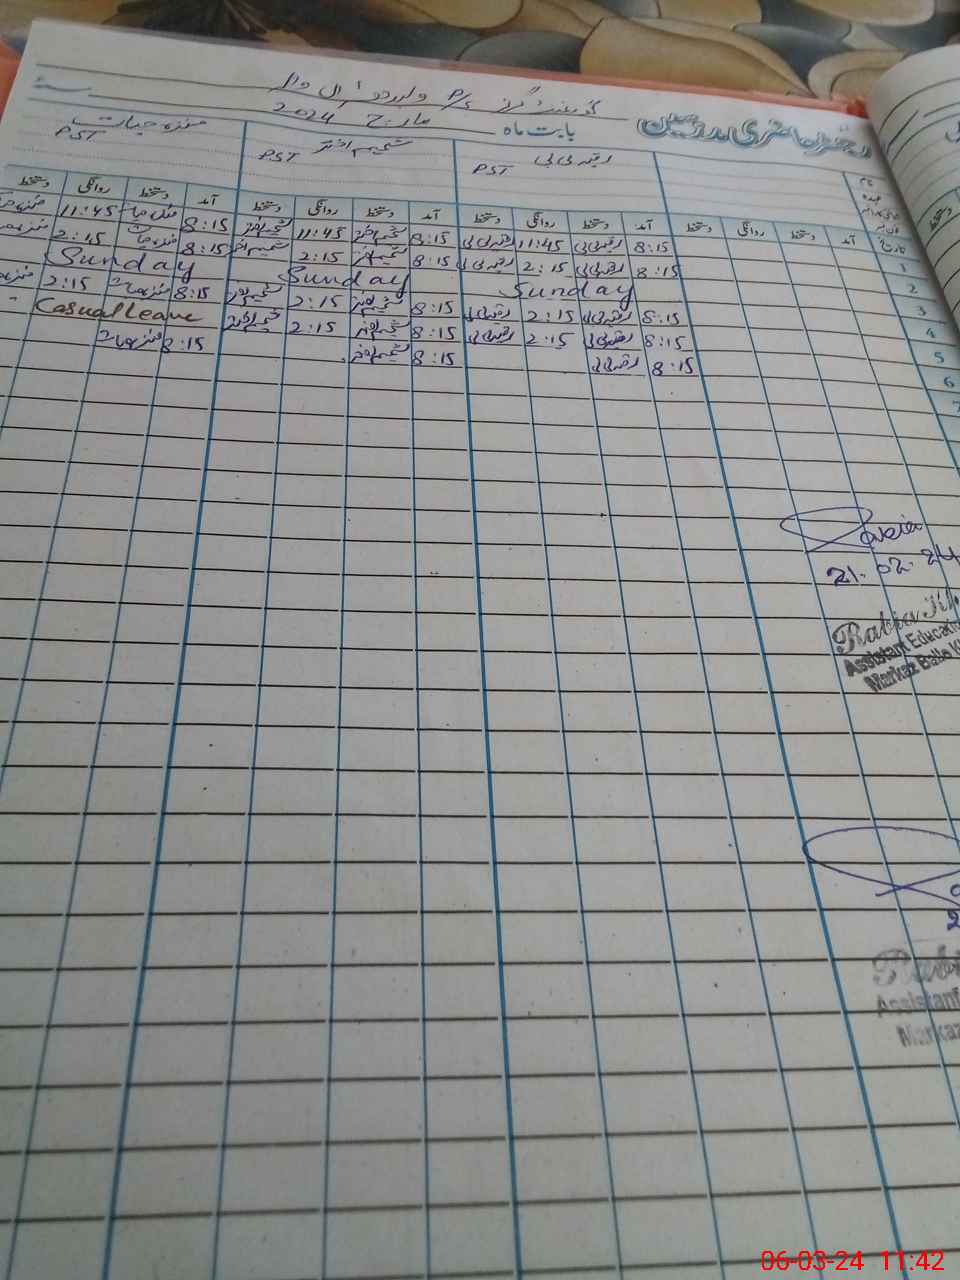 گورنمنٹ گرلز P/S
رجسٹر حاضری مدرسین بابت ماہ مارچ 2024
رقیہ بی بی شمیم اختر منزہ حیات
PST PST PST
نام
عہدہ
تاریخ آمد دستخط روانگی دستخط آمد دستخط روانگی دستخط آمد دستخط روانگی دستخط آمد دستخط روانگی دستخط
1 8:15 رقیہ بی بی 11:45 رقیہ بی بی 8:15 شمیم اختر 11:45 شمیم اختر 8:15 منزہ حیات 11:45 منزہ حیات
2 8:15 رقیہ بی بی 2:15 رقیہ بی بی 8:15 شمیم اختر 2:15 شمیم اختر 8:15 منزہ حیات 2:15 منزہ حیات
3 Sunday Sunday Sunday
4 8:15 رقیہ بی بی 2:15 رقیہ بی بی 8:15 شمیم اختر 2:15 شمیم اختر 8:15 منزہ حیات 2:15 منزہ حیات
5 8:15 رقیہ بی بی 2:15 رقیہ بی بی 8:15 شمیم اختر 2:15 شمیم اختر Casual Leave
6 8:15 رقیہ بی بی 8:15 شمیم اختر 8:15 منزہ حیات
7
21.02.24
Rabia
Assistant Educati
Markaz
Rabi
Assistant
Markaz
06-03-24 11:42